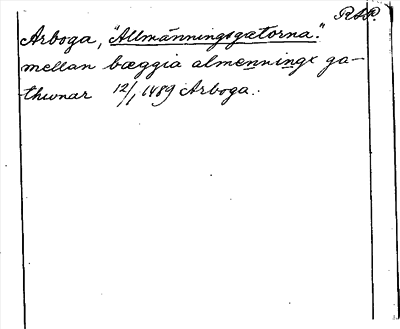 RAP.
Arboga, "Allmänningsgatorna."
mellan bæggia almenninge ga-
thwnar 12/1 1489 Arboga.